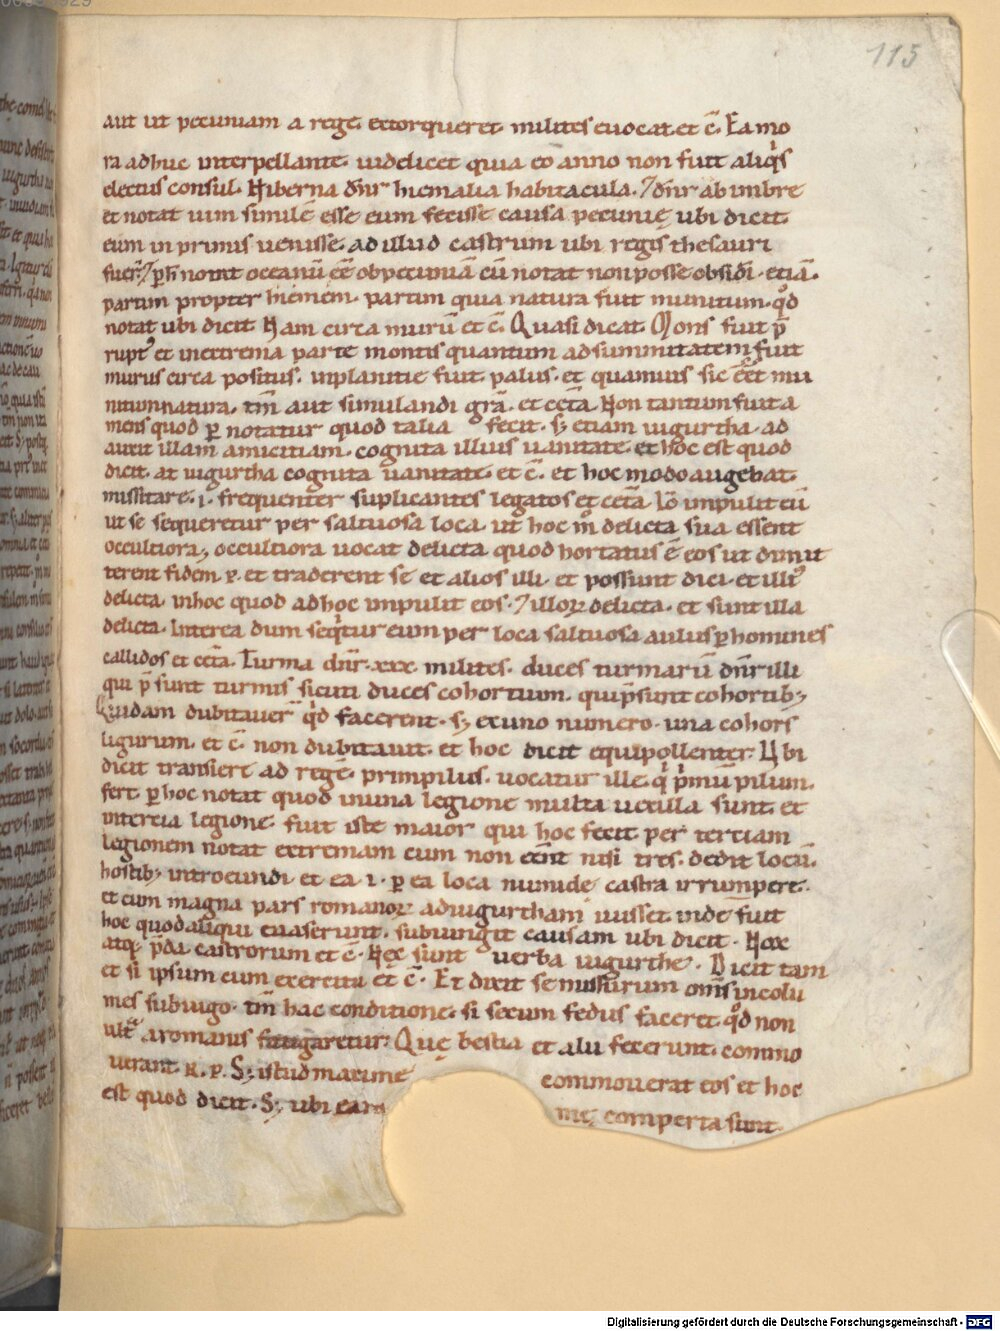 115
aut ut pecuniam a rege extorqueret milites euocat et c̄. Ea mo
ra adhuc interpellante uidelicet quia eo anno non fuit aliq̇s
electus consul. Hiberna dn̄r hiemalia habitacula. ⁊ dn̄r ab imbre
et notat uim similē esse eum fecisse causa pecunię ubi dicit
eum in primis uenisse ad illud castrum ubi regis thesauri
partim propter hiemem. partim quia natura fuit munitum. qd̄
notat ubi dicit Nam circa murū et c̄. Quasi dicat Mons fuit p̄
rupt᾽ et in extrema parte montis quantum ad summitatem fuit
murus circa positus. in planitie fuit palus. et quamuis sic eēt mu
nitum natura. tm̄ aut simulandi gr̄a. et cet̄a. Non tantum fuit a
mens quod ꝑ notatur quod talia fecit. sꝫ etiam iugurtha. ad
auxit illam amicitiam. cognita illius uanitate. et hoc est quod
dicit. at iugurtha cognita uanitate et c̄. et hoc modo augebat.
missitare .i. frequenter suplicantes legatos et cet̄a. Iō impulit eū
ut se sequeretur per saltuosa loca. ut hoc m̄ delicta sua essent
occultiora, occultiora uocat delicta quod hortatus ē eos ut dimit
terent fidem .p. et traderent se et alios illi. et possunt dici. et illi᾽
delicta. in hoc quod ad hoc impulit eos. ⁊ illoꝝ delicta. et sunt illa
delicta. Interea dum seq̇tur eum per loca saltuosa aulus ꝑ homines
callidos et cet̄a. Turma dn̄r .xxx. milites. duces turmarū dn̄r illi
qui p̄sunt turmis sicuti duces cohortium. qui p̄sunt cohortibꝫ
Quidam dubitauer̄ qd̄ facerent. sꝫ ex uno numero. una cohors
ligurum. et c̄. non dubitauit. et hoc dicit equipollenter. Ubi
dicit transiere ad regē. primpilus. uocatur ille q̇ ṗmū pilum.
fert. ꝑ hoc notat quod in una legione multa uexilla sunt. et
in tercia legione fuit iste maior qui hoc fecit per terciam
legionem notat extremam cum non eēnt nisi tres. dedit locū.
hostibꝫ introeundi et ea .i. ꝑ ea loca numide castra irrumpere.
et cum magna pars romanoꝝ ad iugurtham iuisset. inde fuit
hoc quod aliqui euaserunt. subiungit causam ubi dicit. Nox
atqꝫ p̄da castrorum et c̄. Hec sunt uerba iugurthe. Dicit tam
et si ipsum cum exercitu et c̄. Et dixit se missurum om̄s incolu
mes sub iugo. tm̄ hac conditione. si secum fedus faceret. qd̄ non
a romanis fungaretur. Quę bestia et alii fecerunt. commo
uerant .R.P. Sꝫ istud maxime commouerat eos et hoc
est quod dicit. Sꝫ ubi ea me comperta sunt.
Digitalisierung gefördert durch die Deutsche Forschungsgemeinschaft - DFG